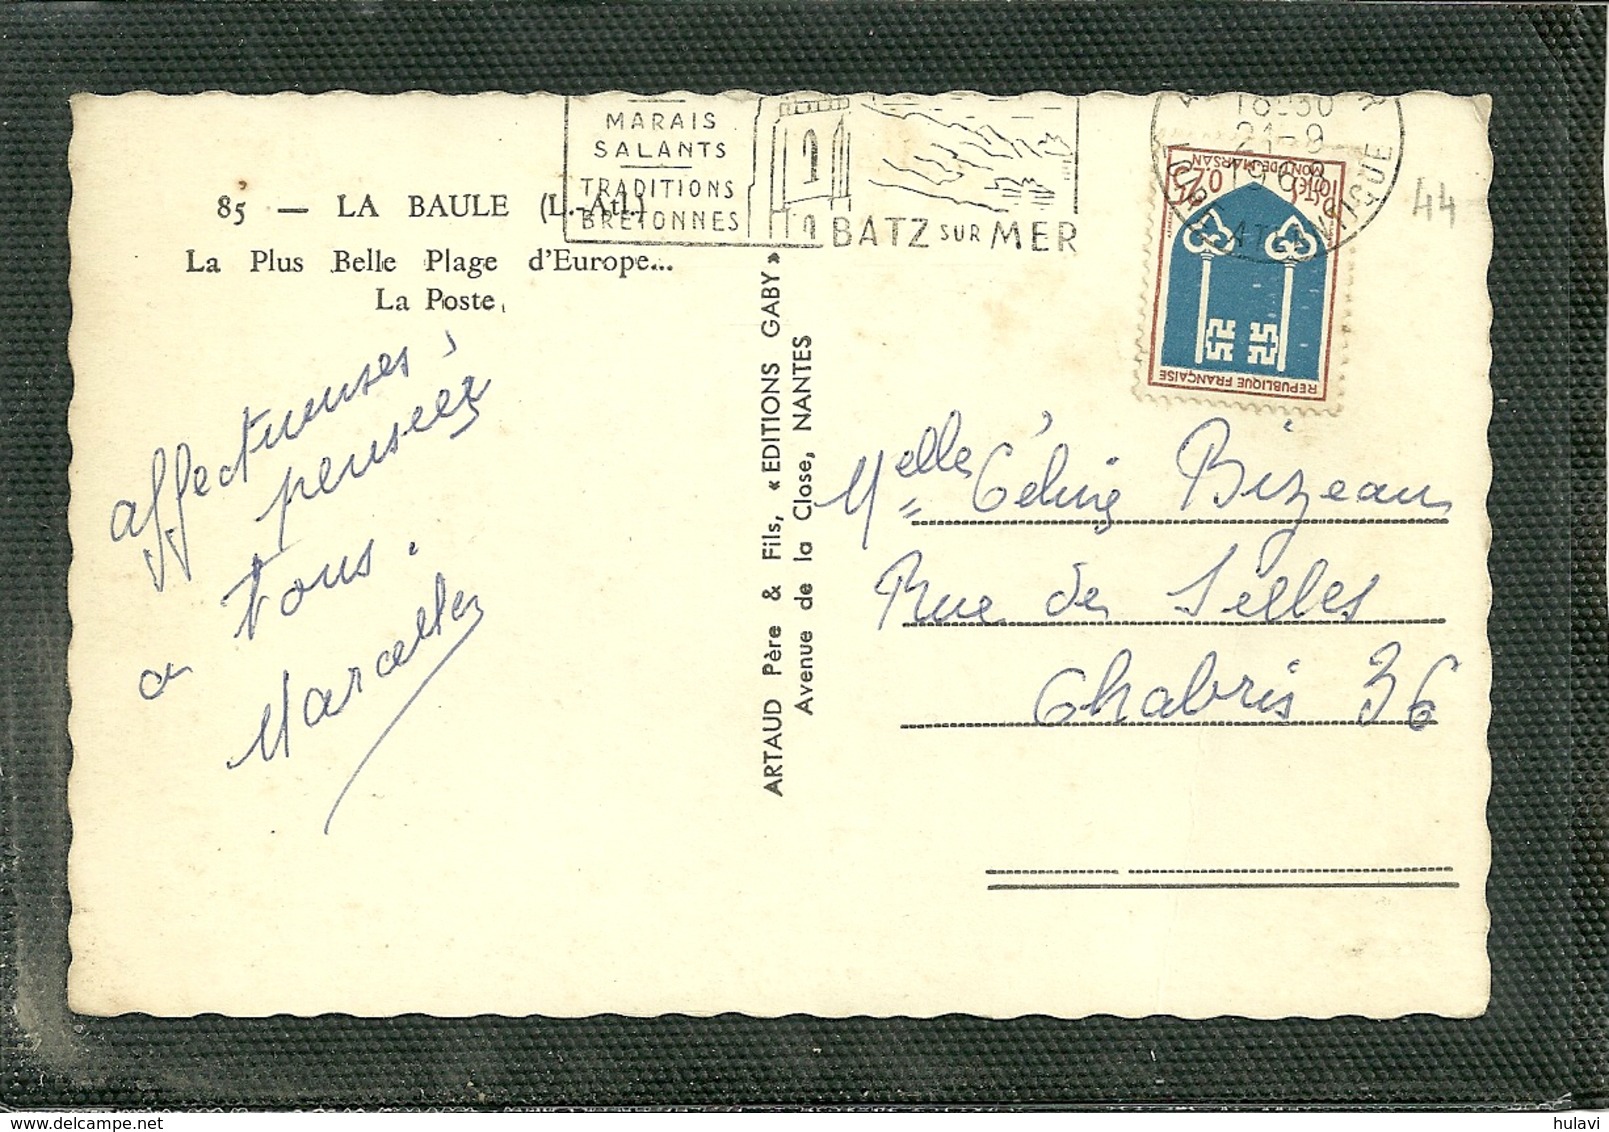 MARAIS
SALANTS
TRADITIONS
BRETONNES
BATZ SUR MER
18-30
21-9
ATLANTIQUE
44
85 — LA BAULE (L.-Atl.)
La Plus Belle Plage d'Europe...
La Poste
0,20
MONT-DE-MARSAN
REPUBLIQUE FRANÇAISE
affectueuses
pensées
a tous.
Marcelle
ARTAUD Père & Fils, « EDITIONS GABY »
Avenue de la Close, NANTES
Melle Céline Bizeau
Rue de Selles
Chabris 36
hulavi